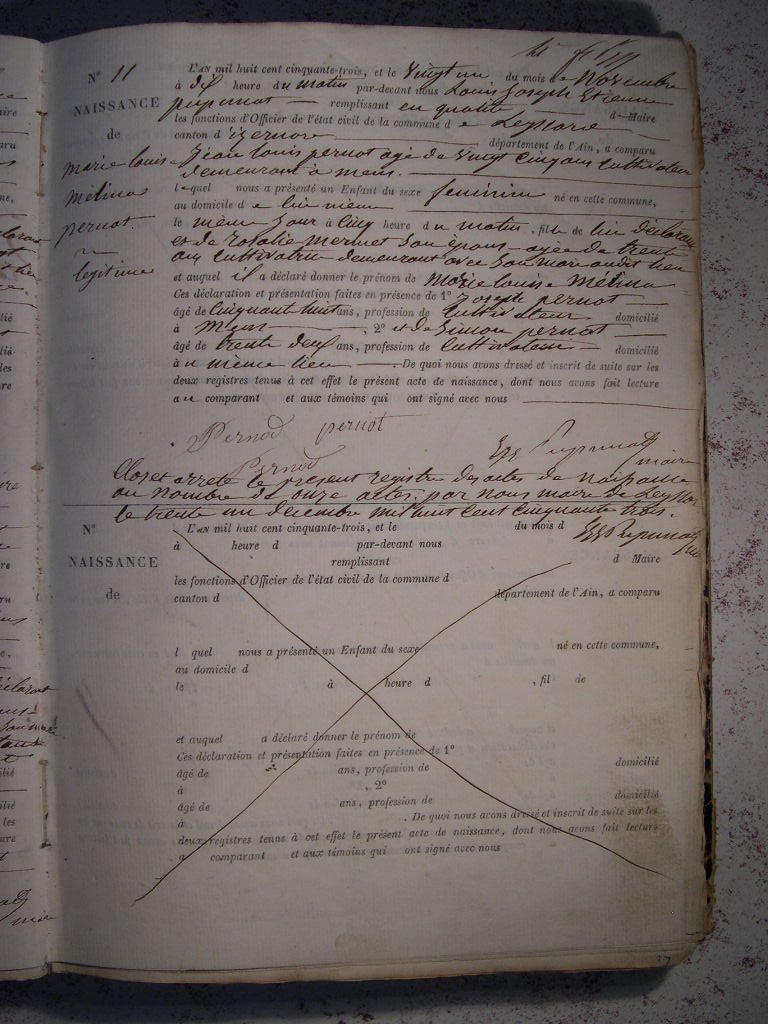 N° 11
NAISSANCE
de
marie louise
mélina
pernot.
légitime
L'AN mil huit cent cinquante-trois, et le vingt un du mois de Novembre
à dix heure du matin par-devant nous Louis Joseph Etienne
remplissant en qualité de Maire
les fonctions d'Officier de l'état civil de la commune de Leyssard
canton d'izernore département de l'Ain, a comparu
Jean louis pernot agé de vingt cinq ans cultivateur
demeurant à mens.
lequel nous a présenté un Enfant du sexe feminin né en cette commune,
au domicile de lui même
le même jour à cinq heure du matin, fille de lui déclarant
et de rosalie mermet son épouse agée de trente
ans cultivatrice demeurant avec son mari audit lieu
et auquel il a déclaré donner le prénom de marie louise mélina
Ces déclaration et présentation faites en présence de 1° Joseph pernot
âgé de cinquant huit ans, profession de cultivateur domicilié
à mens, 2° et de Simon pernot
âgé de trente deux ans, profession de cultivateur domicilié
au même lieu. De quoi nous avons dressé et inscrit de suite sur les
deux registres tenus à cet effet le présent acte de naissance, dont nous avons fait lecture
au comparant et aux témoins qui ont signé avec nous
Pernod pernot
Pernod maire
Clos et arreté le present registre des actes de naissance
au nombre de onze actes. par nous maire de Leyssard
le trente un decembre mil huit cent cinquante trois.
N°
NAISSANCE
de
L'AN mil huit cent cinquante-trois, et le du mois d
à heure d par-devant nous
remplissant d Maire
les fonctions d'Officier de l'état civil de la commune d
canton d département de l'Ain, a comparu
l quel nous a présenté un Enfant du sexe né en cette commune,
au domicile d
le à heure d , fil de
et auquel a déclaré donner le prénom de
Ces déclaration et présentation faites en présence de 1°
âgé de ans, profession de domicilié
à , 2°
âgé de ans, profession de domicilié
à . De quoi nous avons dressé et inscrit de suite sur les
deux registres tenus à cet effet le présent acte de naissance, dont nous avons fait lecture
a comparant et aux témoins qui ont signé avec nous